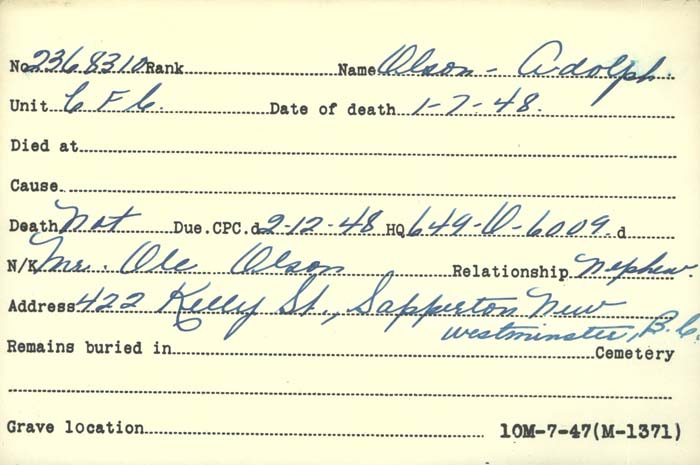 No 2368310 Rank Name Olson - Adolph.
Unit C F C. Date of death 1-7-48.
Died at
Cause
Death Not Due.CPC.d 2-12-48 HQ 649-O-6009.d
N/K Mr. Ole Olson Relationship Nephew.
Address 422 Kelly St., Sapperton New
Westminster, B.C.
Remains buried in Cemetery
Grave location 10M-7-47(M-1371)